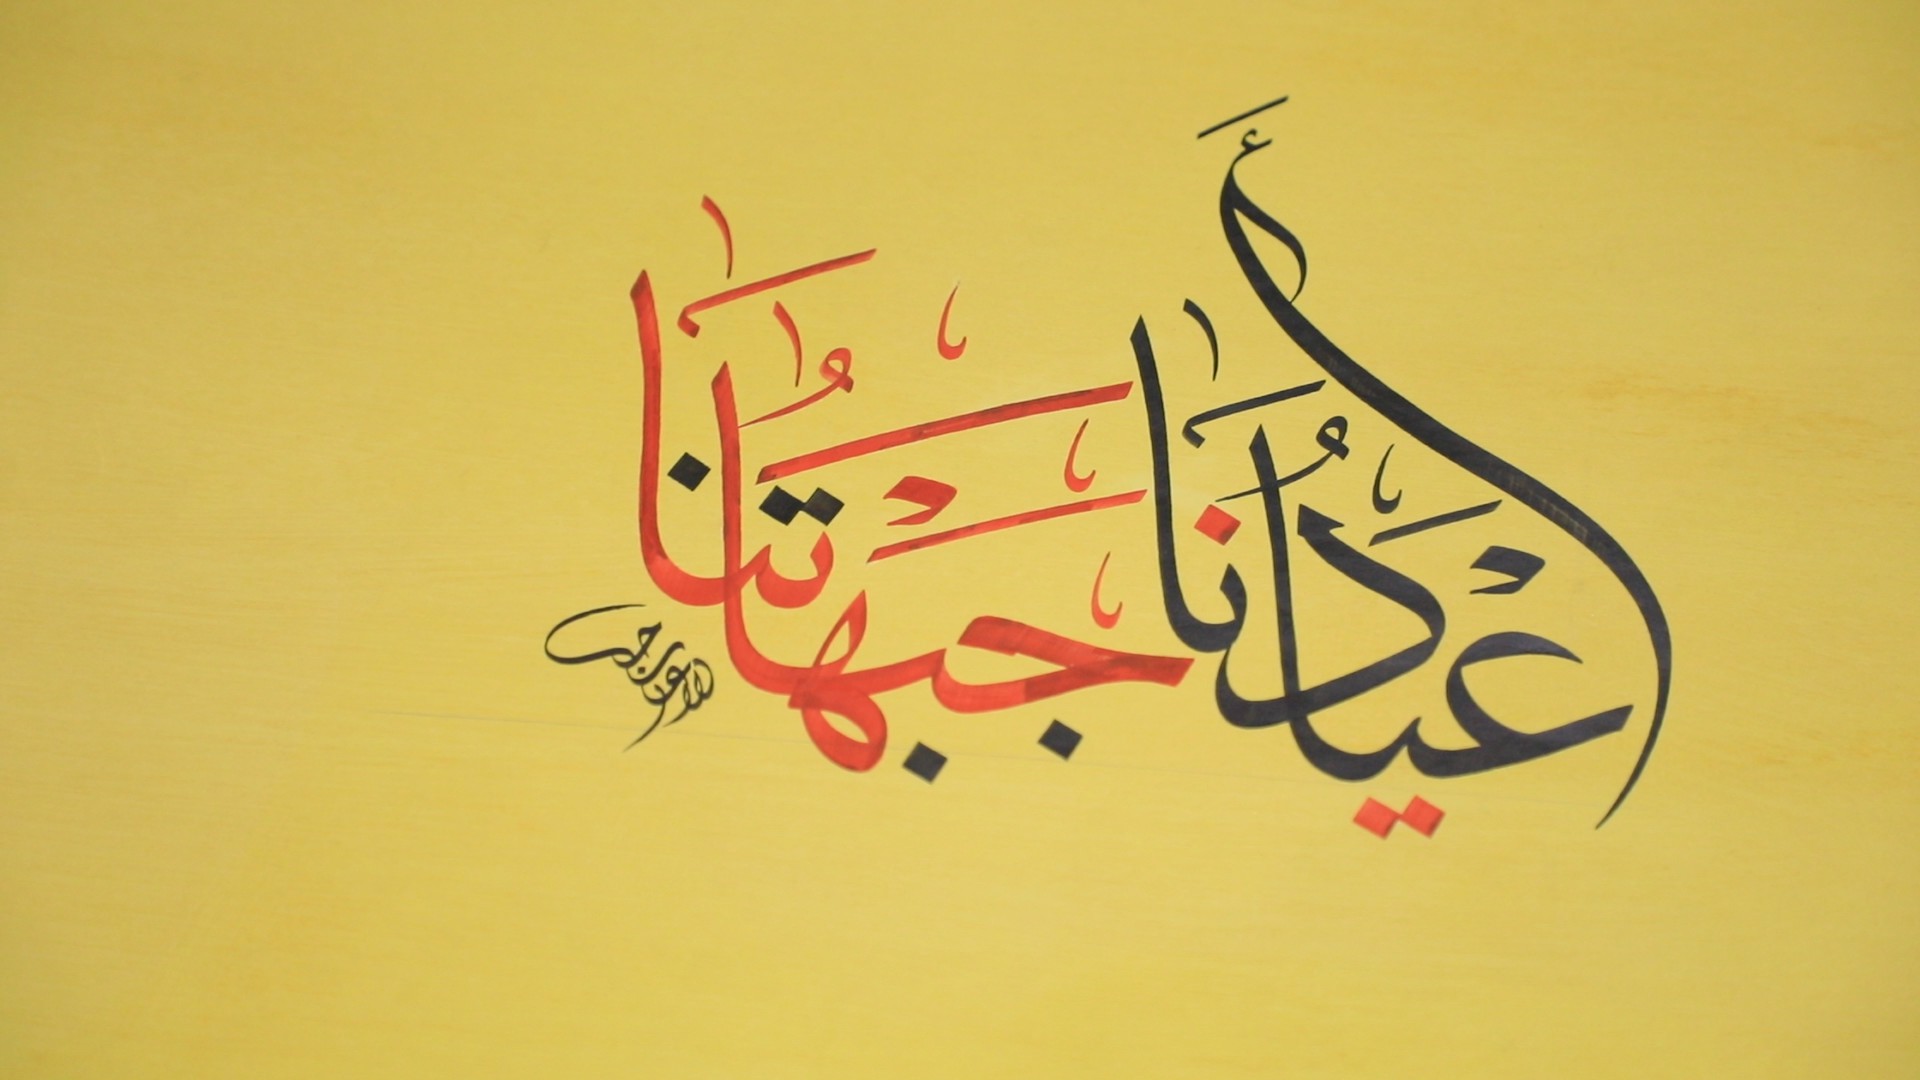 أَعْيَادُنَا جَبَهَاتُنَا